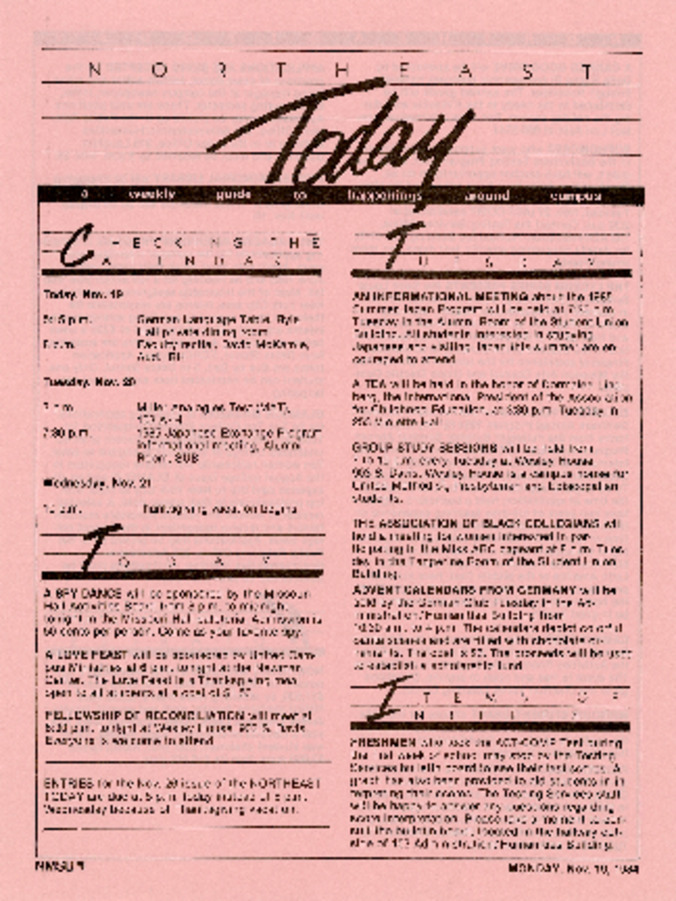 NORTHEAST
Today
a weekly guide to happenings around campus
CHECKING THE
CALENDAR
Today, Nov. 19
p.m. German Language Table, Ryle
Hall private dining room
8 p.m. Faculty recital, David McKamie,
Tuesday, Nov. 20
Miller Analogies Test (MAT),
7:30 p.m. 1985 Japanese Exchange Program
informational meeting, Alumni
Room, SUB
Wednesday, Nov. 21
Thanksgiving vacation begins
TODAY
A SPY DANCE will be sponsored by the Missouri
Hall Activities Board from 9 p.m. to midnight
tonight in the Missouri Hall cafeteria. Admission is
50 cents per person. Come as your favorite spy.
A LOVE FEAST will be sponsored by United Cam-
pus Ministries at 6 p.m. tonight at the Newman
Center. The Love Feast is a Thanksgiving meal
open to all students at a cost of
FELLOWSHIP OF RECONCILIATION will meet at
p.m. tonight at Wesley House, S. Davis.
Everyone is welcome to attend.
ENTRIES for the Nov. 26 issue of the NORTHEAST
TODAY are due at 5 p.m. today instead of 5 p.m.
Wednesday because of Thanksgiving vacation.
TUESDAY
AN INFORMATIONAL MEETING about the 1985
Summer Japan Program will be held at 7:30 p.m.
Tuesday in the Alumni Room of the Student Union
Building. All students interested in studying
Japanese and visiting Japan this summer are en-
couraged to attend.
A TEA will be held in the honor of
berg, the International President of the Association
for Childhood Education, at 3:30 p.m. Tuesday in
Violette Hall.
GROUP STUDY SESSIONS will be held from
p.m. every Tuesday at Wesley House
S. Davis. Wesley House is a campus house for
United Methodist, Presbyterian and Episcopalian
students.
THE ASSOCIATION OF BLACK COLLEGIANS will
hold a meeting for women interested in par-
ticipating in the Miss ABC pageant at p.m. Tues-
day in the Room of the Student Union
Building.
ADVENT CALENDARS FROM GERMANY will be
sold by the German Club Tuesday in the Ad-
ministration/Humanities Building from
10:30 a.m. to p.m. The calendars depict colorful
scenes and are filled with chocolate or
The cost is The proceeds will be used
to establish a scholarship fund.
ITEMS OF
FRESHMEN who took the ACT-COMP Test during
the first week of school may stop by the Testing
Services bulletin board to see their test scores. A
graph has also been provided to aid students in in-
terpreting their scores. The Testing Services staff
will be happy to answer any questions regarding
score interpretation. Please take a moment to con-
sult the bulletin board, located in the hallway out-
side of Administration/Humanities Building.
NMSU
MONDAY, Nov. 19, 1984